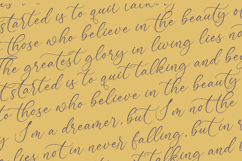 started is to quit talking
to those who believe in the beauty o
The greatest glory in living lies not
tstarted is to quit talking and be
to those who believe in the beauty
y I'm a dreamer, but I'm not the
lies not in never falling, but in r
started is to quit talking and
who believe in the beauty